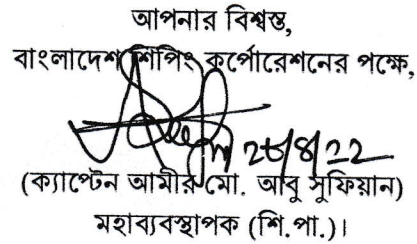 আপনার বিশ্বস্ত,
বাংলাদেশ শিপিং কর্পোরেশনের পক্ষে,
২৮/৪/২২
(ক্যাপ্টেন আমীর মো. আবু সুফিয়ান)
মহাব্যবস্থাপক (শি.পা.)।